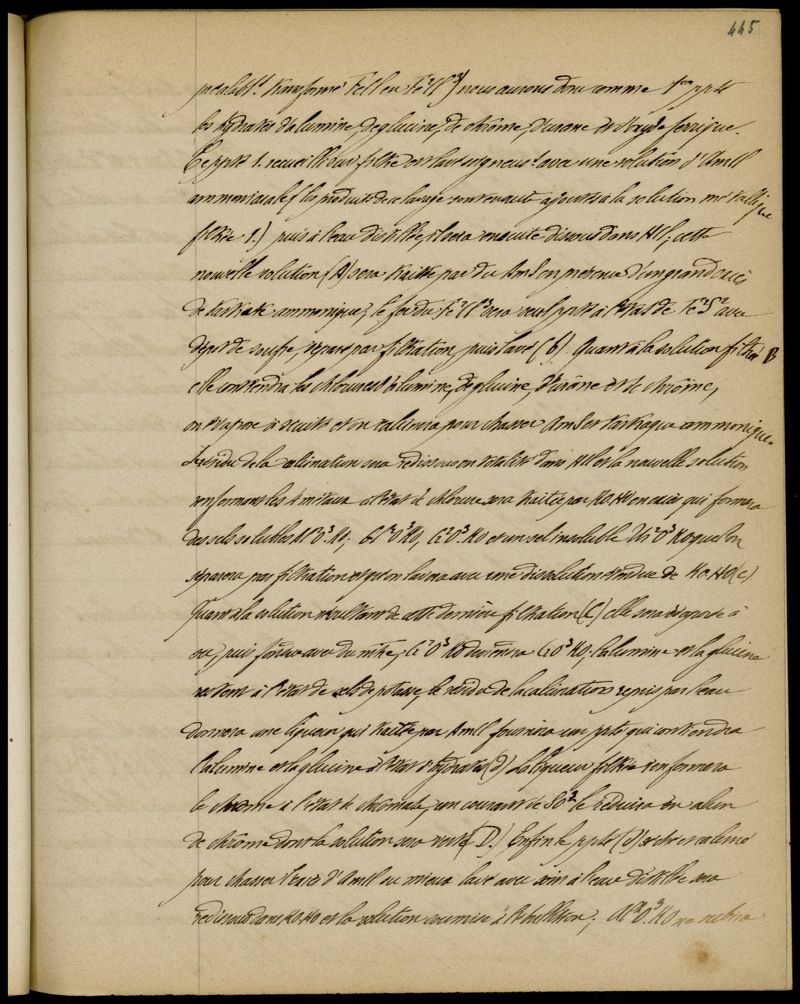 445
préalabt. transformé FeCl en Fe²Cl³) nous aurons donc comme 1er ppté
les hydrates d'alumine, de glucine, de chrôme, d'urane et d'oxyde ferrique.
Ce ppté 1. recueilli sur filtre est lavé soigneust. avec une solution d'AmCl
ammoniacale (les produits de ce lavage enrenant ajoutés à la solution métallique
filtrée 1.) puis à l'eau distillée, il sera ensuite dissous dans HCl, cette
nouvelle solution (A) sera traitée par du AmS en présence d'un grand excès
de tartrate ammonique, le fer du Fe²Cl³ sera seul ppté à l'état de Fe²S² avec
dépôt de soufre, séparé par filtration, puis lavé (b). Quant à la solution filtrée B
elle contendra les chlorures d'alumine, de glucine, d'urâne et de chrôme,
on évapore à siccité et on calcinera pour chasser AmS et tartrate ammonique.
Le résidu de la calcination sera redissous en totalité dans HCl et la nouvelle solution
renfermant les 4 métaux à l'état de chlorure sera traitée par KO HO en excès qui formera
des sels solubles Al²O³.KO, Gl²O³KO, Cr²O³.KO et un sel insoluble Ur²O³ KO que l'on
séparera par filtration et qu'on lavera avec une dissolution étendue de KO HO (c)
Quant à la solution résultant de cette dernière filtration (C) elle sera évaporée à
sec, puis fondue avec du nitre, Cr²O³ KO deviendra CrO³ KO, l'alumine et la glucine
restent à l'état de sels de potasse, le résidu de la calcination repris par l'eau
donnera une liqueur qui traitée par AmCl fournira un ppté qui contendra
l'alumine et la glucine à l'état d'hydrates (d) La liqueur filtrée renfermera
le chrome à l'état de chromate, un courant de SO² le réduira en alun
de chrôme dont la solution sera verte (D.) Enfin le ppté (d) séché et calciné
pour chasser l'excès d'AmCl ou mieux lavé avec soin à l'eau distillée sera
redissous dans KO HO et la solution soumise à l'ébullition; Al²O³.KO ne subira